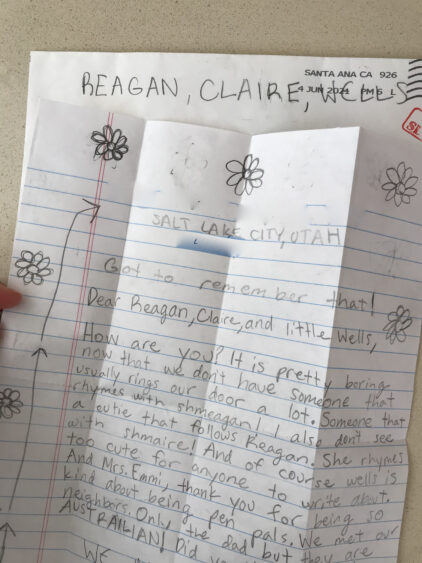 SANTA ANA CA 926
4 JUN 2021 PM 6 L
REAGAN, CLAIRE, WELLS
SALT LAKE CITY, UTAH
Got to remember that!
Dear Reagan, Claire, and little Wells,
How are you? It is pretty boring
now that we don't have someone that
usually rings our door a lot. Someone that
rhymes with shmeagan! I also don't see
a cutie that follows Reagan. She rhymes
with shmaire! And of course wells is
too cute for anyone to write about.
And Mrs. Emmi, thank you for being so
kind about being pen pals. We met our
neighbors. Only the dad but they are
AUSTRAILIAN! Did
We